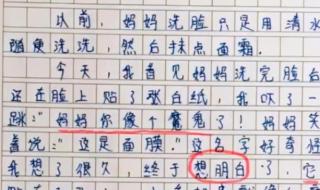 以前，妈妈洗脸只是用清水
随便洗洗，然后抹点面霜。
今天，我看见妈妈洗完脸后
还在脸上贴了张白纸，我吓了一
跳："妈妈你像个魔鬼了！妈妈笑
着说："这是面膜"这名字好奇怪
我想了很久，终于想明白了，它